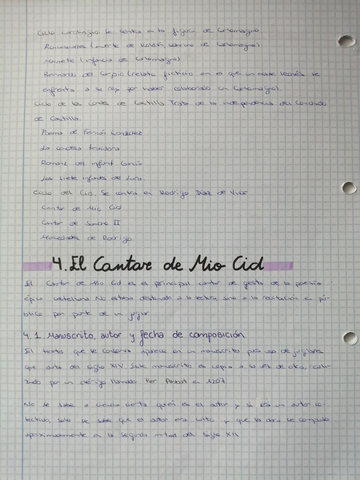 Ciclo carolingio se centra en la figura de Carlomagno
Roncesvalles (muerte de Roldán, sobrino de Carlomagno)
Mainete (infancia de Carlomagno)
Bernardo del Carpio (relato ficticio en el que un noble leonés se
enfrenta a la rey por haber colaborado con Carlomagno).
Ciclo de los condes de Castilla Trata de la independencia del Condado
de Castilla.
Poema de Fernán González
La condesa traidora
Romanz del infant García
Los siete infantes de Lara
Ciclo del Cid. Se centra en Rodrigo Díaz de Vivar
Cantar de Mio Cid
Cantar de Sancho II
Mocedades de Rodrigo
4. El Cantar de Mio Cid
El Cantar de Mio Cid es el principal cantar de gesta de la poesía
épica castellana. No estaba destinado a la lectura sino a la recitación en pú-
blico por parte de un juglar
4.1. Manuscrito, autor y fecha de composición
El texto que se conserva aparece en un manuscrito de juglaría
que data del siglo XIV. Este manuscrito es copia a su vez de otro,
por un clérigo llamado Per Abbat en 1207.
No se sabe a ciencia cierta quién es el autor y si es un autor o
solo se sabe que el autor era culto y que la obra se compuso
aproximadamente en la segunda mitad del siglo XII